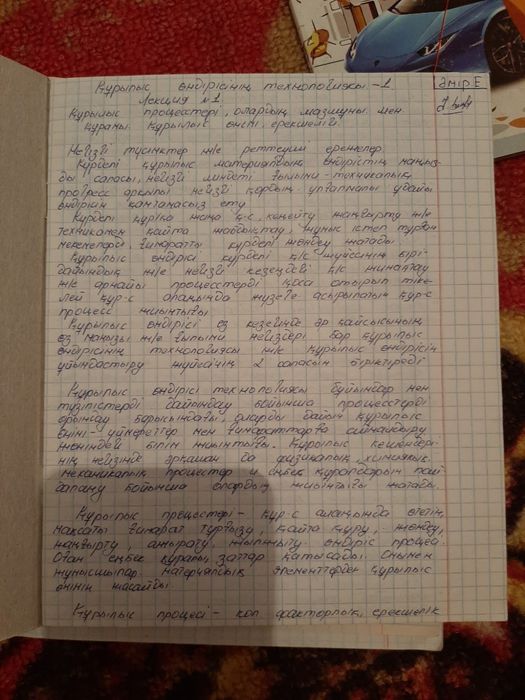 Құрылыс өндірісінің технологиясы -1
Әмір Е
Лекция №1
Құрылыс процесстері, олардың мазмұны мен
құрамы. Құрылыс өнімі, ерекшелігі
Негізгі түсініктер ж/е реттеуші ережелер
Күрделі құрылыс материалдық өндірістің маңыз-
ды саласы, негізгі міндеті ғылыми-техникалық
прогресс арқылы негізгі қордың ұлғаймалы ұдайы
өндірісін қамтамасыз ету
Күрделі құр-ка жаңа қ-с, кеңейту жаңғырту ж/е
техникамен қайта жабдықтау, жұмыс істеп тұрған
мекемелерді, ғимаратты күрделі жөндеу жатады
Құрылыс өндірісі күрделі қ/с жүйесінің бірі
дайындық ж/е негізгі кезеңдегі қ/с жинақтау
ж/е арнайы процесстерді қоса отырып тіке-
лей құр-с алаңында жүзеге асырылатын құр-с
процесс жиынтығы
Құрылыс өндірісі өз кезегінде әр қайсысының
өз маңызы ж/е ғылыми негіздері бар құрылыс
өндірісінің технологиясы ж/е құрылыс өндірісін
ұйымдастыру жүйесінің 2 саласын біріктіреді
Құрылыс өндірісі технологиясы бұйымдар мен
түзілістерді дайындау бойынша процесстерді
орындау барысындағы, оларды дайын құрылыс
өнімі - үймереттер мен ғимараттарға айналдыру
жөніндегі білім жиынтығы. Құрылыс кешендері-
нің негізінде әрқашан да физикалық химиялық
механикалық процестер и еңбек құралдарын пай-
далану бойынша олардың жиынтығы жатады.
Құрылыс процестері - құр-с алаңында өтетін,
мақсаты ғимарат тұрғызу, қайта құру, жөндеу,
жаңғырту, ажырату, жылжыту өндіріс процесі
Оған еңбек құралы, заттар қатысады. Онымен
жұмысшылар материалдық элементтерден құрылыс
өнімін жасайды
Құрылыс процесі - көп факторлық, ерекшелік